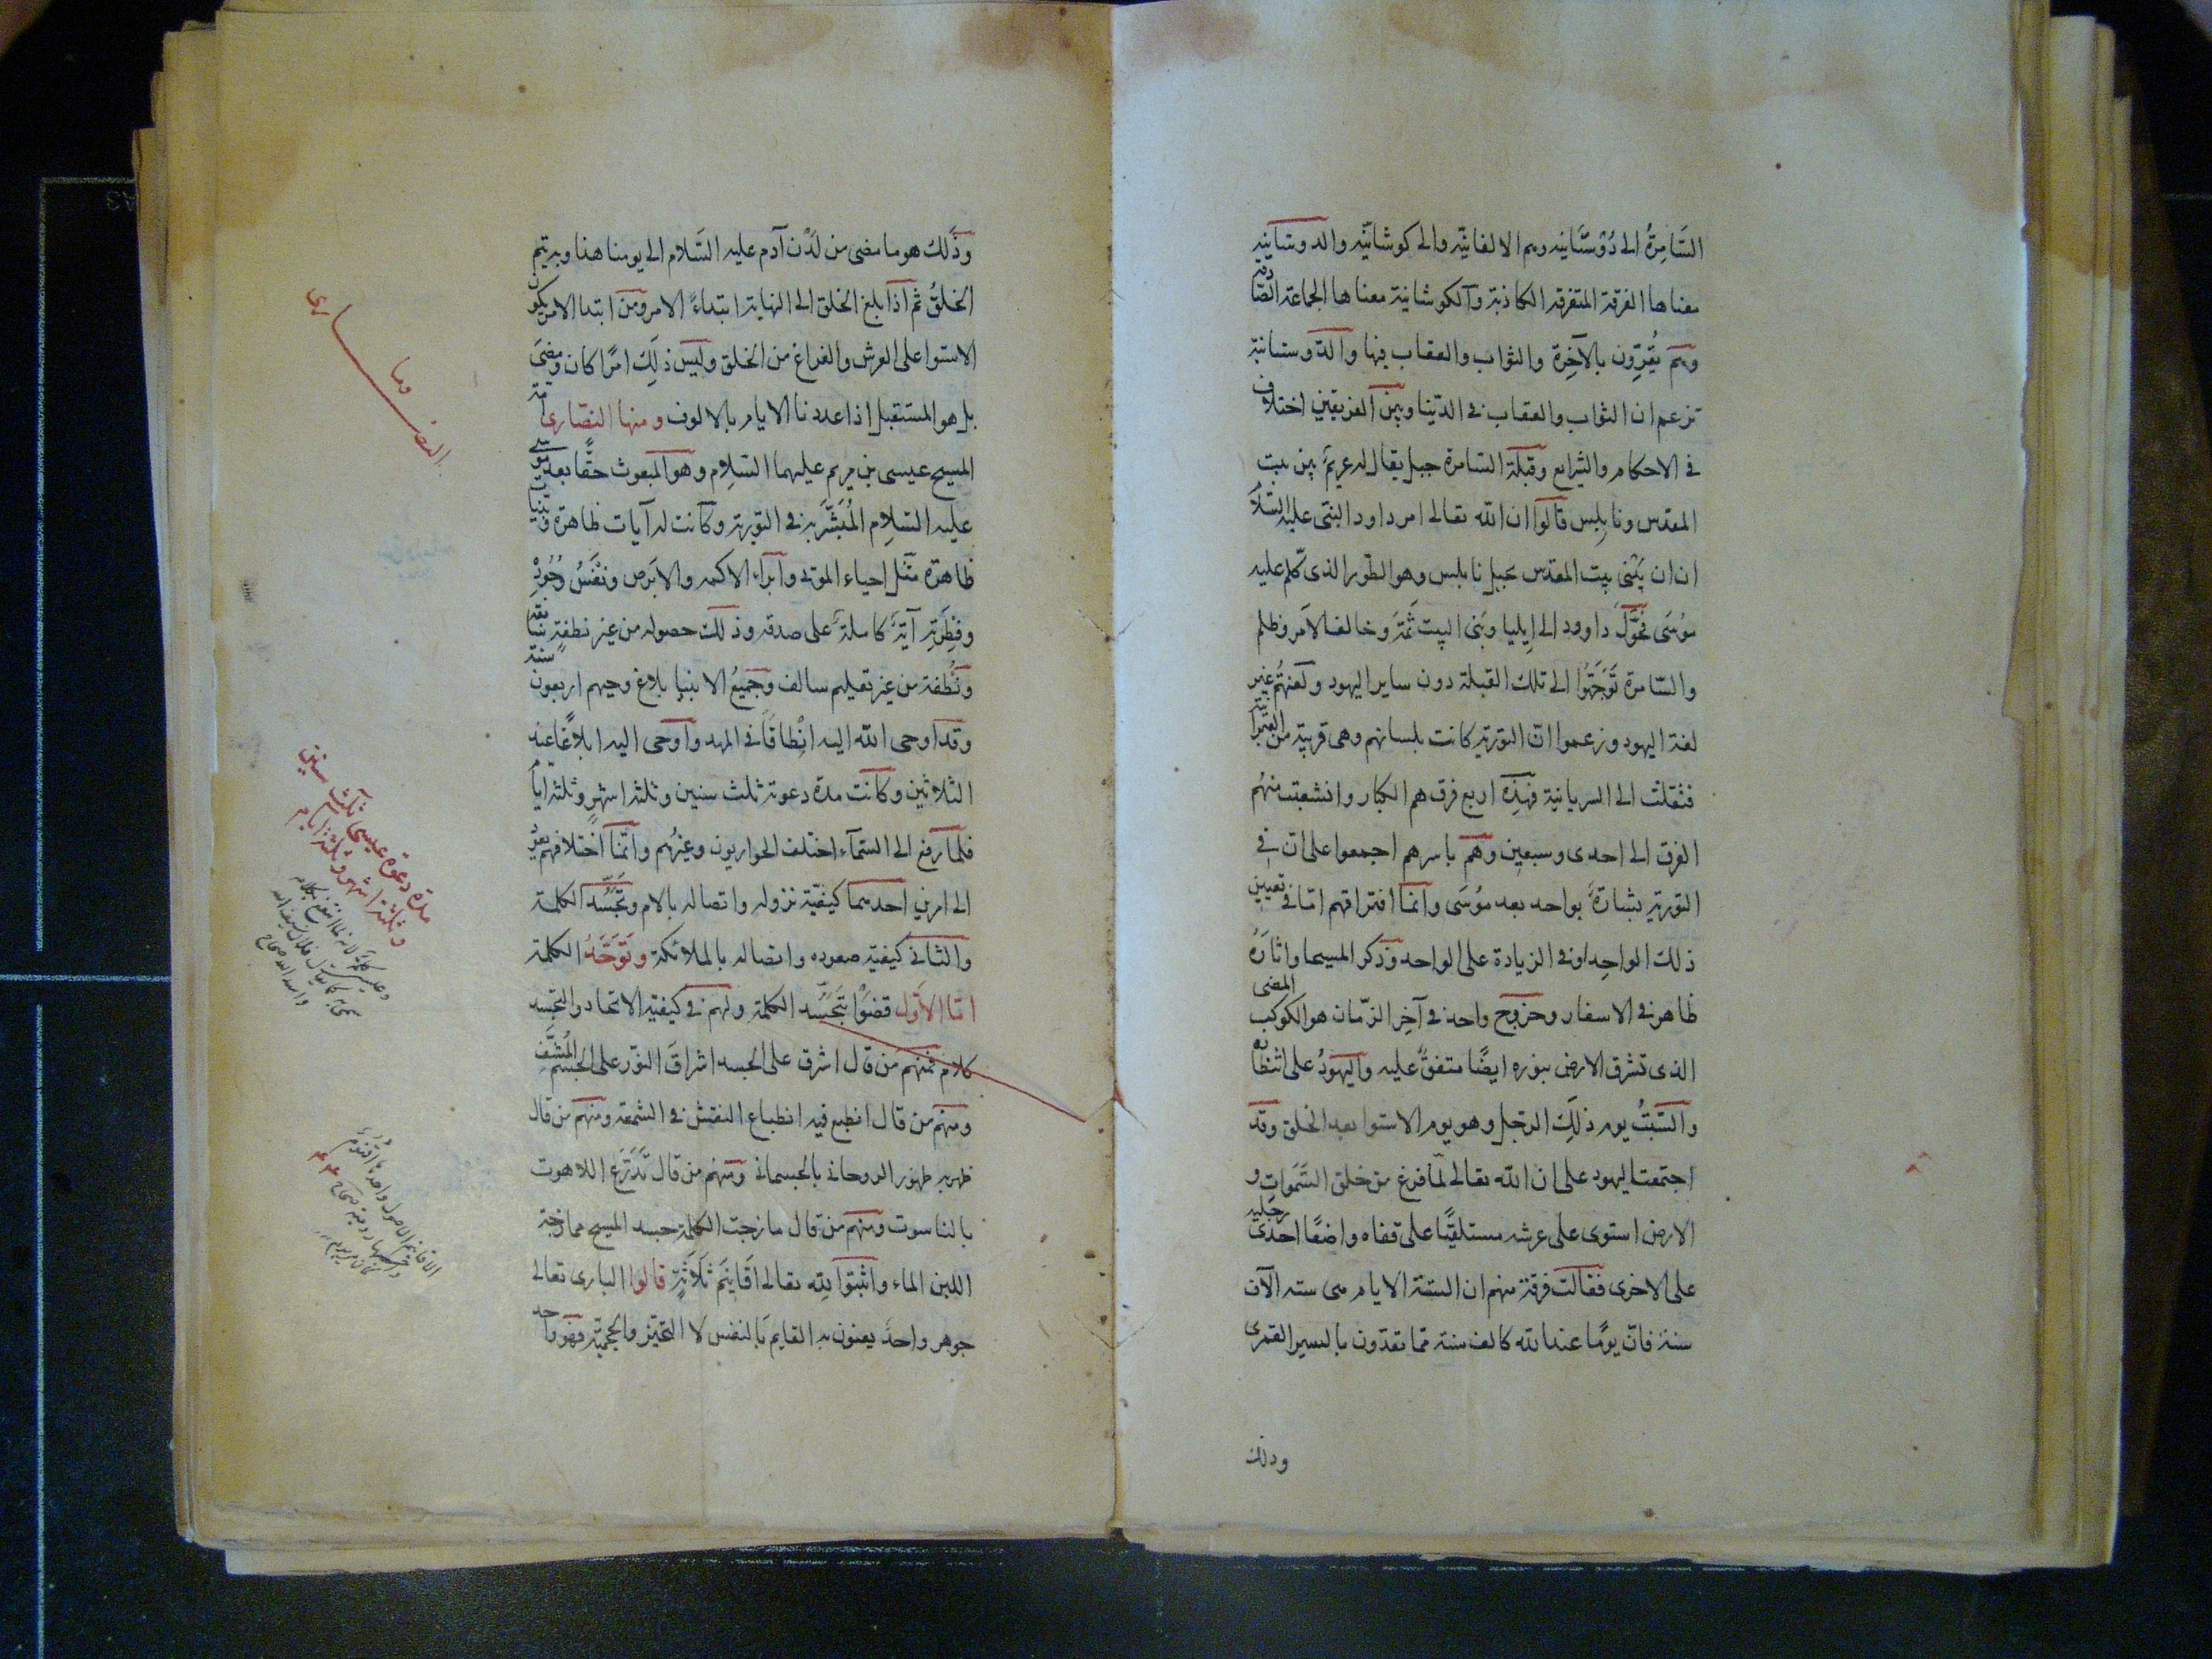 السَّامِرَةُ الى دُوْسْتَانيه وهم الالفانيّه والى كوشانيّه والدوستانيه
معناها الفرقة المتفرقه الكاذبة والكوشانية معناها الجماعة الصّادقه
وهم يُقِرّون بالآخِرة والثواب والعقاب فيها والدّوستانية
تزعم ان الثواب والعقاب فى الدّينا وبين الفريقين اختلاف
فى الاحكام والشرايع وقبلة السّامرة جبل يقال له عريم بين بيت
المقدس ونابِلِس قالوا ان الله تعالى امر داود النبّى عليه السّلام
ان ان يَبْنى بيت المقدس بجبل نابلس وهو الطّور الذى كلّم عليه
مُوسَى فتَحَوَّلَ داوود الى اِيليا وبَنى البيت ثَمَّةَ وخالف الاَمر وظلم
والسّامرة تَوَجَّهُوا الى تلك القبلة دون ساير اليهود ولغتهُم غير
لغة اليهود وزعموا انّ التورية كانت بلسانهم وهى قريبة من العبرانية
فنقلت الى السريانية فهذِه اربع فرق هم الكبار وانشعبت منهُم
الفرق الى احدى وسبعين وهُم باسرهم اجمعوا على ان فى
التورية بشارَةً بواحد بعد موُسَى وانما افتراقهم امّا فى تعيين
ذلك الواحِد او فى الزيادة على الواحد وذكر المسيحا واثارَهُ
ظاهر فى الاسفار وخروج واحد فى آخِر الزّمان هو الكوكب المضى
الذى تشرق الارض بنوره ايضًا متفقٌ عليه واليهودُ على انتظاره
والسّبتُ يوم ذلَِك الرجل وهو يوم الاستوا بعد الخلق وقد
اجتمعت اليهود على ان الله تعالى لمّا فرغ من خلق السَّموات و
الارض استوى على عرشه مستلقيًا على قفاه واضعًا احدى رجليه
على الاخرى فقالت فرقة منهم ان الستة الايام هى سته الآف
سنة فان يومًا عند الله كالف سنة ممّا تعدّون بالسير القمرى
وذلك
وذَلك هو ما مضى من لَدُن آدم عليه السّلام الى يومنا هذا وبه يتم
الخلقُ ثم اذا بلغ الخلق الى النهاية ابتداءُ الامر ومن ابتدا الامر يكون
الاستوا على العرش والفراغ من الخلق وليس ذلِك امرًا كان ومضىَ
بل هو المستقبل اذا عددنا الايام بالالوف ومنها النصّارى امّة
المسيح عيسى بن مريم عليهما السّلام وهو المبعوث حقًّا بعد موسى
عليه السّلام المُبَشَّر به فى التورية وكانت له آيات ظاهرة وبيّنات
ظاهرة مثل احياء الموتى وابراء الاكمه والابرص ونفْسُ وُجُوده
وفِطرَتِه آيَةٌ كاملةٌ على صدقه وذلك حصوله من غير نطفةٍ سابقه
ونُطْفه من غير تعليم سالف وجَميعُ الانبيا بلاغ وحيهم اربعون سنة
وقد اوحى الله اليه اِنْطاقًا فى المهد واوحى اليه ابلاغًا عند
الثلاثين وكانت مدة دعوته ثلث سنين وثلثه اشهرٍ وثلثه ايام
فلما رفع الى السّمآء اختلف الحواريون وغيرُهم وانّما اختلافهم يعود
الى امرين احدهما كيفيّة نزوله واتصاله بالام وتجَسُّد الكلمة
والثانى كيفيّه صعوده واتصاله بالملائكة وتَوَحُّدُ الكلمة
امّا الاوّل قضَوْا بتَجَسُّد الكلمة ولهم فى كيفيّة الاتحاد والتجسد
كلام فمنهم مَن قال اشرق على الجسد اشراقَ النوّر على الجِسْم المُشِفّ
ومنهم مَن قال انطبع فيه انطباع النقش فى الشمعه ومنهم من قال
ظهر به ظهور الروحانى بالجسمانى ومنهُم من قال تَدَرّع اللاهوت
بالناسوت ومنهم من قال مازجت الكلمة جسد المسيح ممازجة
اللبن الماء واثبتوا لله تعالى اَقَانِيَم ثَلَاثَةٍ قالوا البارى تعالى
جوهر واحد يعنون به القايم بالنفس لا التحيّز والحجميّة فهو واحد
وما
النصارى
مدة دعوة عيسى ثلث سنين
وثلثة اشهر وثلثة ايام